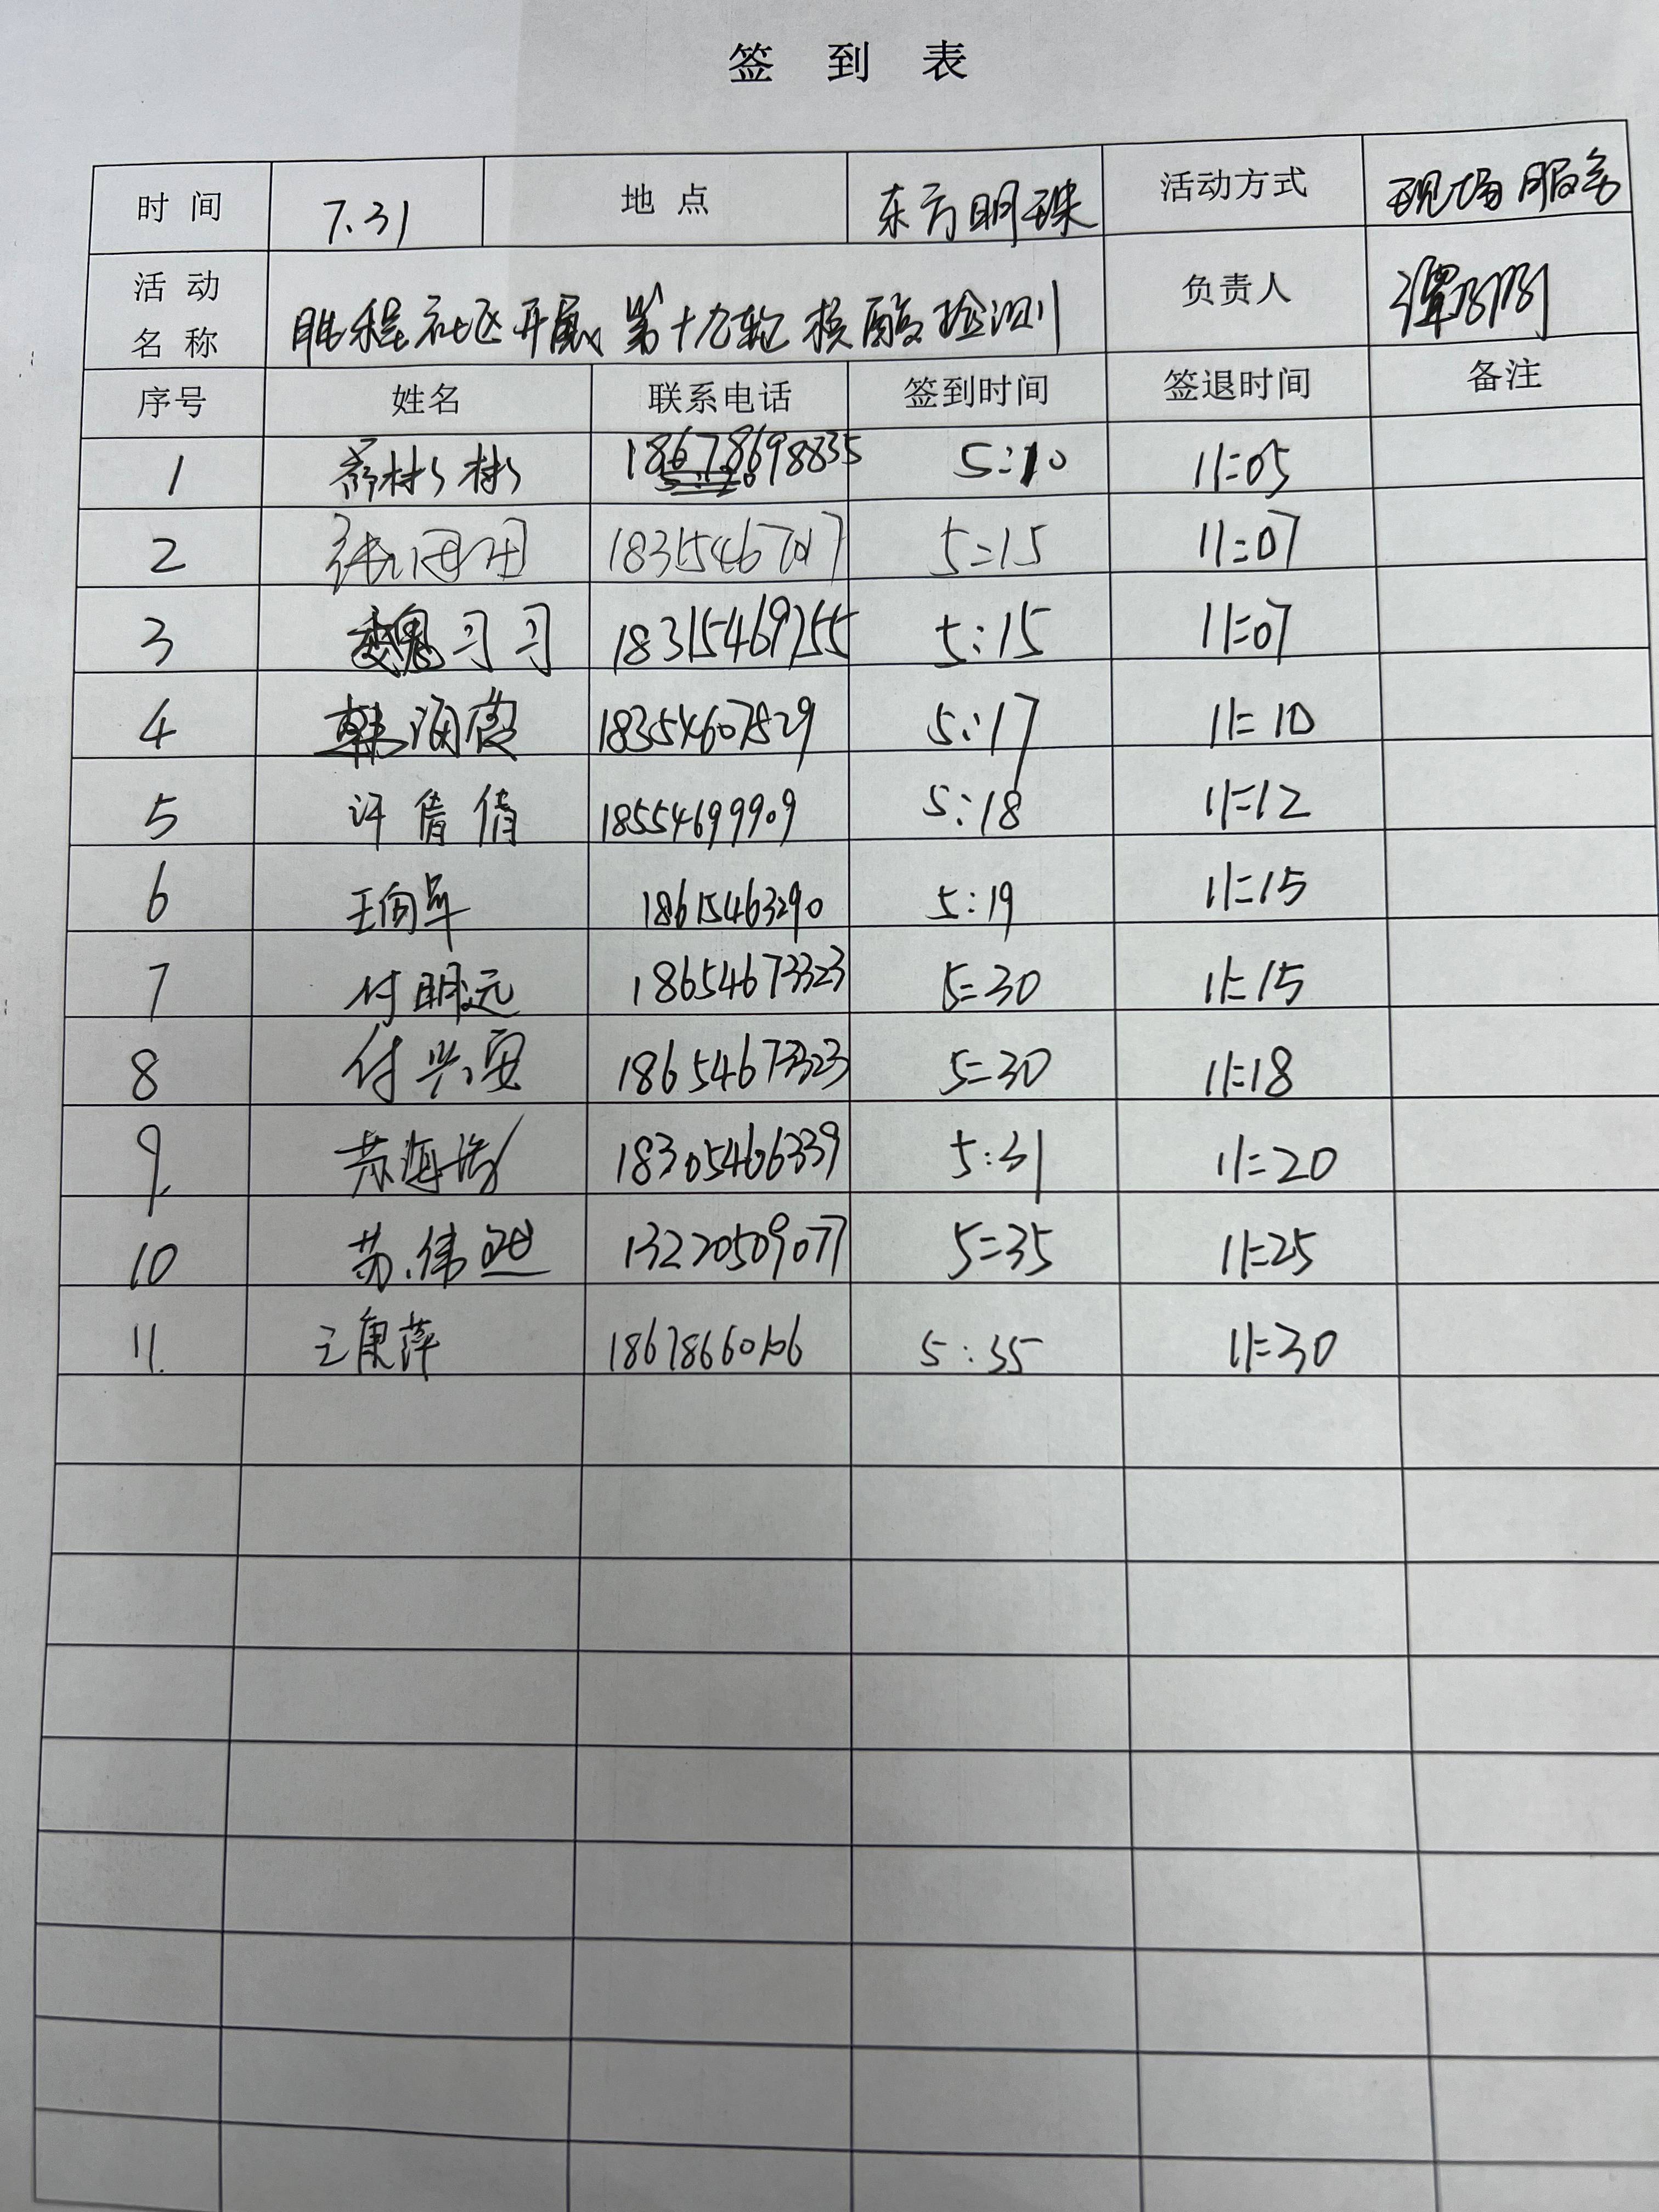 签 到 表
时 间 7.31 地 点 东方明珠 活动方式 现场服务
活 动 名 称 胜程社区开展第十九轮核酸检测 负责人 谭
序号 姓名 联系电话 签到时间 签退时间 备注
1 彬彬 18678698835 5:10 11:05
2 18315467017 5:15 11:07
3 魏习习 18315469755 5:15 11:07
4 韩海霞 18354607529 5:17 11:10
5 许倩倩 18554699909 5:18 11:12
6 王向军 18615463290 5:19 11:15
7 付明远 18654673323 5:30 11:15
8 付兴安 18654673323 5:30 11:18
9 苏海涛 18305466339 5:31 11:20
10 苏伟 13220509077 5:35 11:25
11. 王康萍 18678660106 5:35 11:30